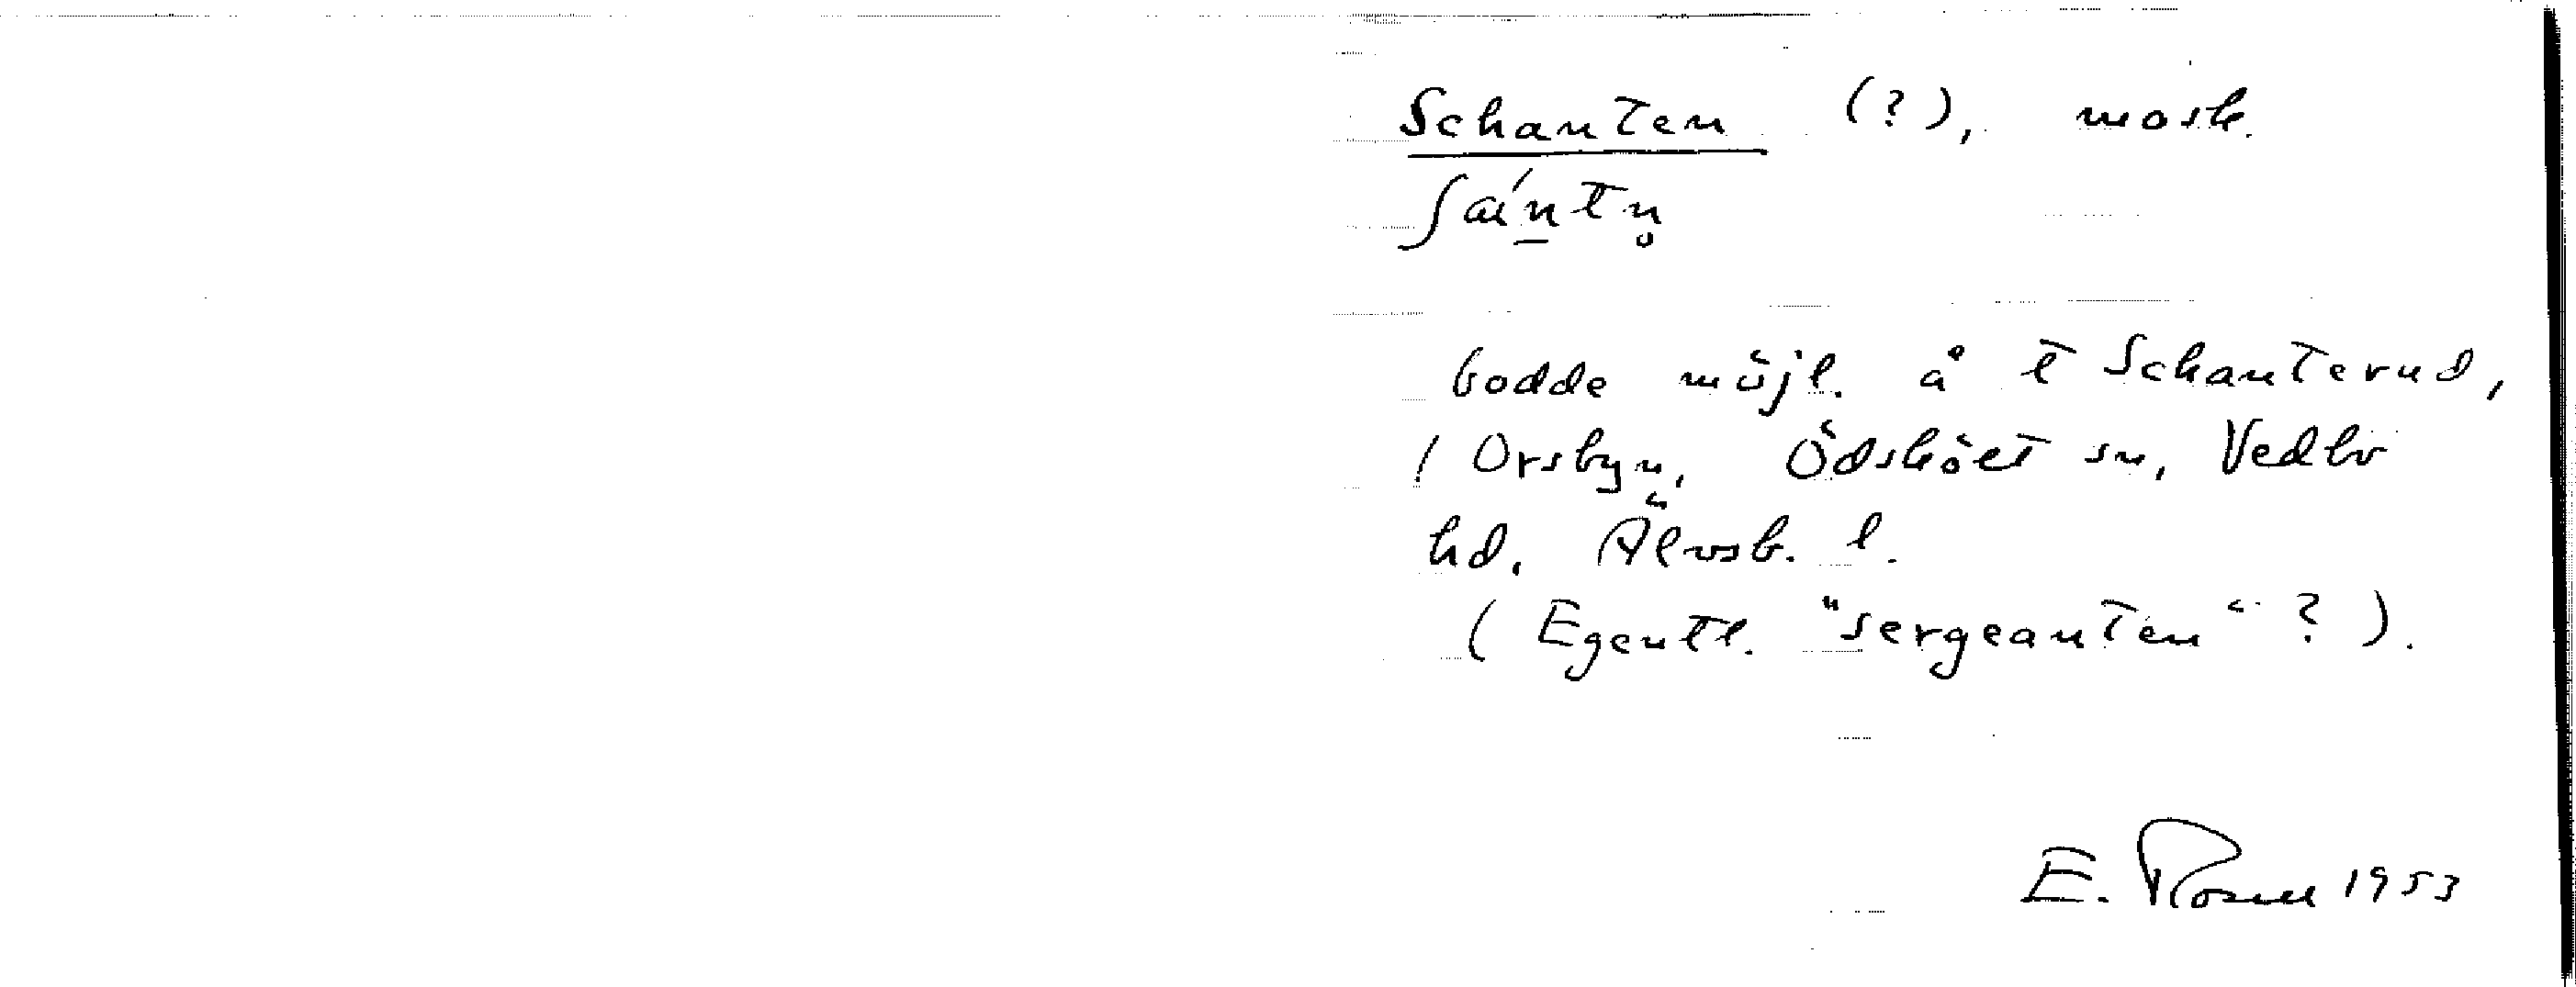 Schanten (?), mask.
ʃáṉtn̥
bodde möjl. å t Schanterud,
/ Orsbyn, Ödsköet sn, Vedbo
hd, Älvsb. l.
( Egentl. "sergeanten" ? ).
E. Rosell 1953